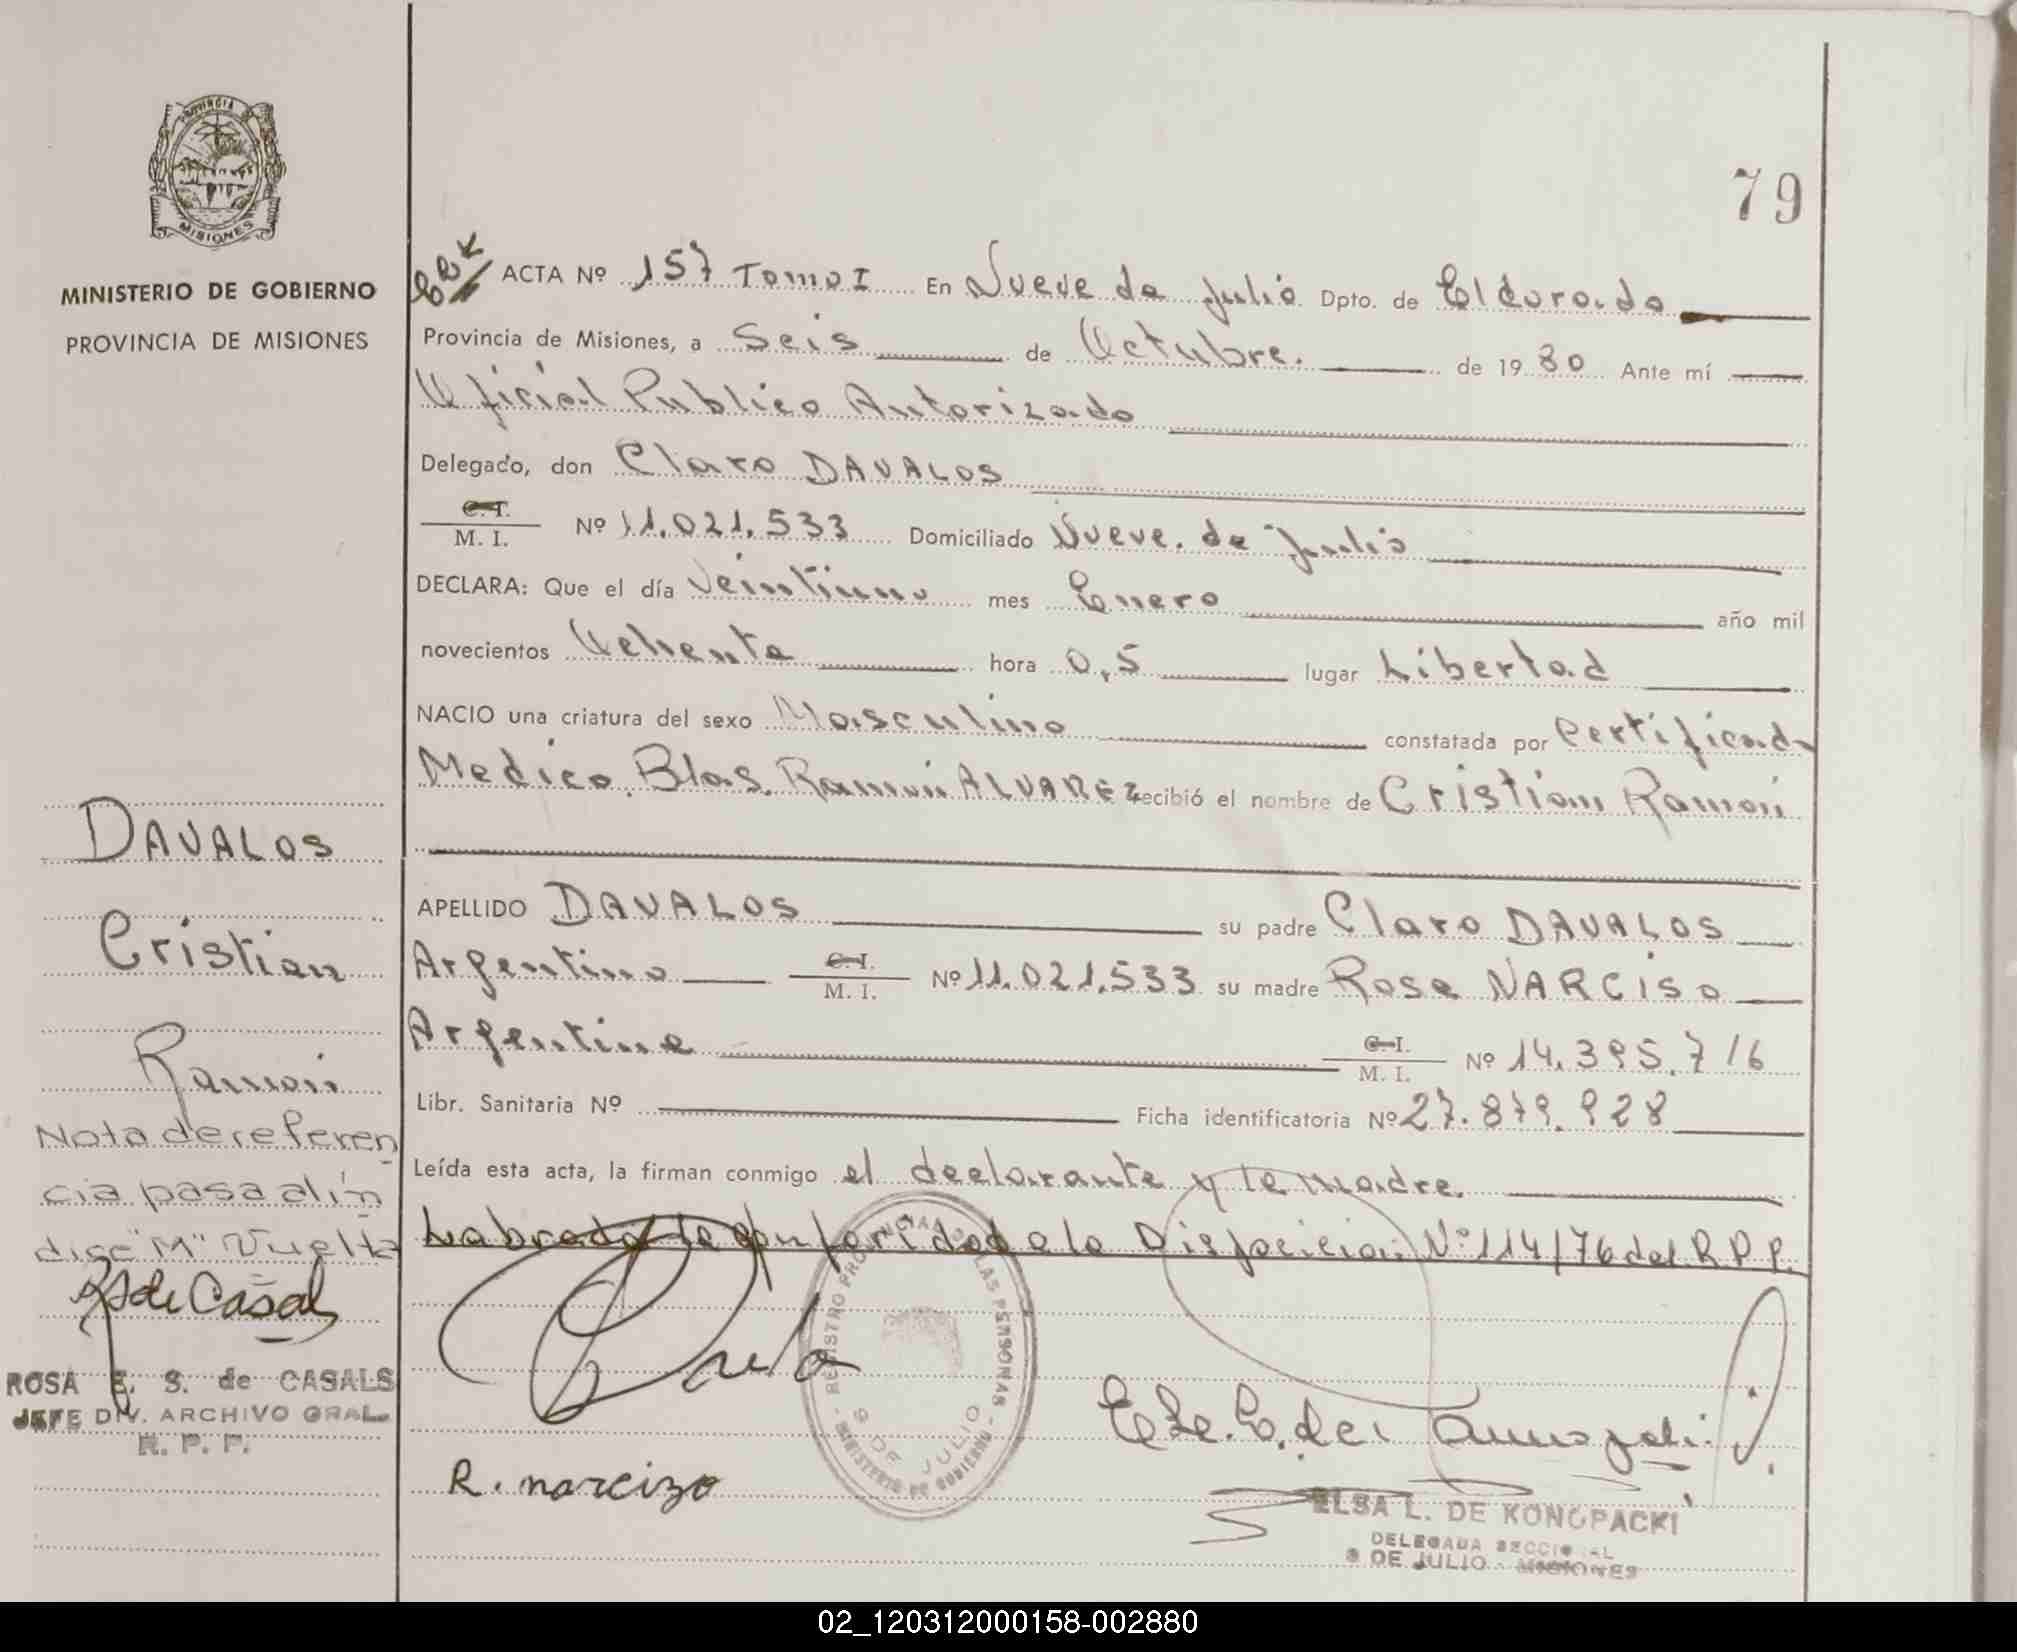 PROVINCIA DE
MISIONES
MINISTERIO DE GOBIERNO
PROVINCIA DE MISIONES
79
ACTA Nº 157 Tomo I En Nueve de Julio Dpto. de Eldorado
Provincia de Misiones, a Seis de Octubre. de 1980 Ante mí
Oficial Publico Autorizado
Delegado, don Claro DAVALOS
C. I.
M. I. Nº 11.021.533 Domiciliado Nueve. de Julio
DECLARA: Que el día Veintiuno mes Enero año mil
novecientos Ochenta hora 0,5 lugar Libertad
NACIO una criatura del sexo Masculino constatada por Certificado
Medico. Blas. Ramón ALVAREZ recibió el nombre de Cristian Ramón
APELLIDO DAVALOS su padre Claro DAVALOS
Argentino C. I. M. I. Nº 11.021.533 su madre Rosa NARCISO
Argentina C. I. M. I. Nº 14.395.716
Libr. Sanitaria Nº Ficha identificatoria Nº 27.879.928
Leída esta acta, la firman conmigo el declarante y la madre.
Labrada de conformidad a la Disposicion Nº 114/76 del R.P.P.
DAVALOS
Cristian
Ramón
Nota de referen
cia pasa al ín
dice "M" Vuelta
RS de Casals
ROSA E. S. de CASALS
JEFE DIV. ARCHIVO GRAL.
R. P. P.
REGISTRO PROVINCIAL DE LAS PERSONAS - MINISTERIO DE GOBIERNO -
9 DE JULIO
R. narcizo
ELSA L. DE KONOPACKI
DELEGADA SECCIONAL
9 DE JULIO - MISIONES
02_120312000158-002880